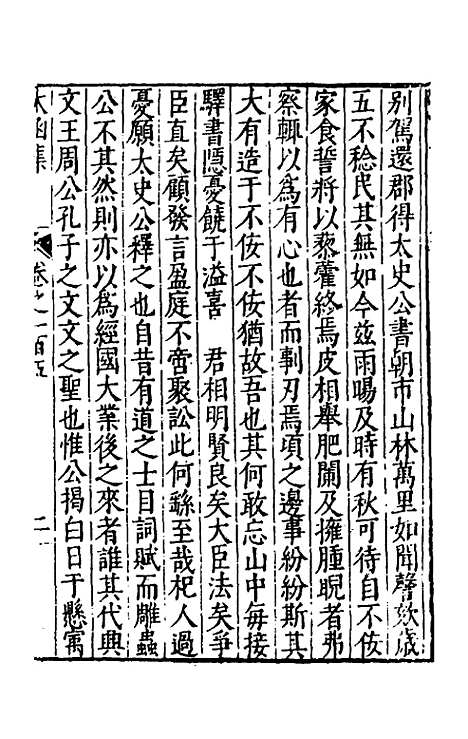 别駕還郡得太史公書朝市山林萬里如聞謦欬歲
五不稔民其無如今兹雨暘及時有秋可待自不佞
家食誓將以藜藿終焉皮相舉肥闒及擁腫睨者弗
察輙以為有心也者而剚刃焉頃之邊事紛紛斯其
大有造于不佞不佞猶故吾也其何敢忘山中每接
驛書隱憂饒于溢喜　君相明賢良矣大臣法矣爭
臣直矣顧發言盈庭不啻聚訟此何繇至哉杞人過
憂願太史公釋之也自昔有道之士目詞賦而雕蟲
公不其然則亦以為經國大業後之來者誰其代興
文王周公孔子之文文之聖也惟公揭白日于懸㝢
太函集　卷之一百五　二